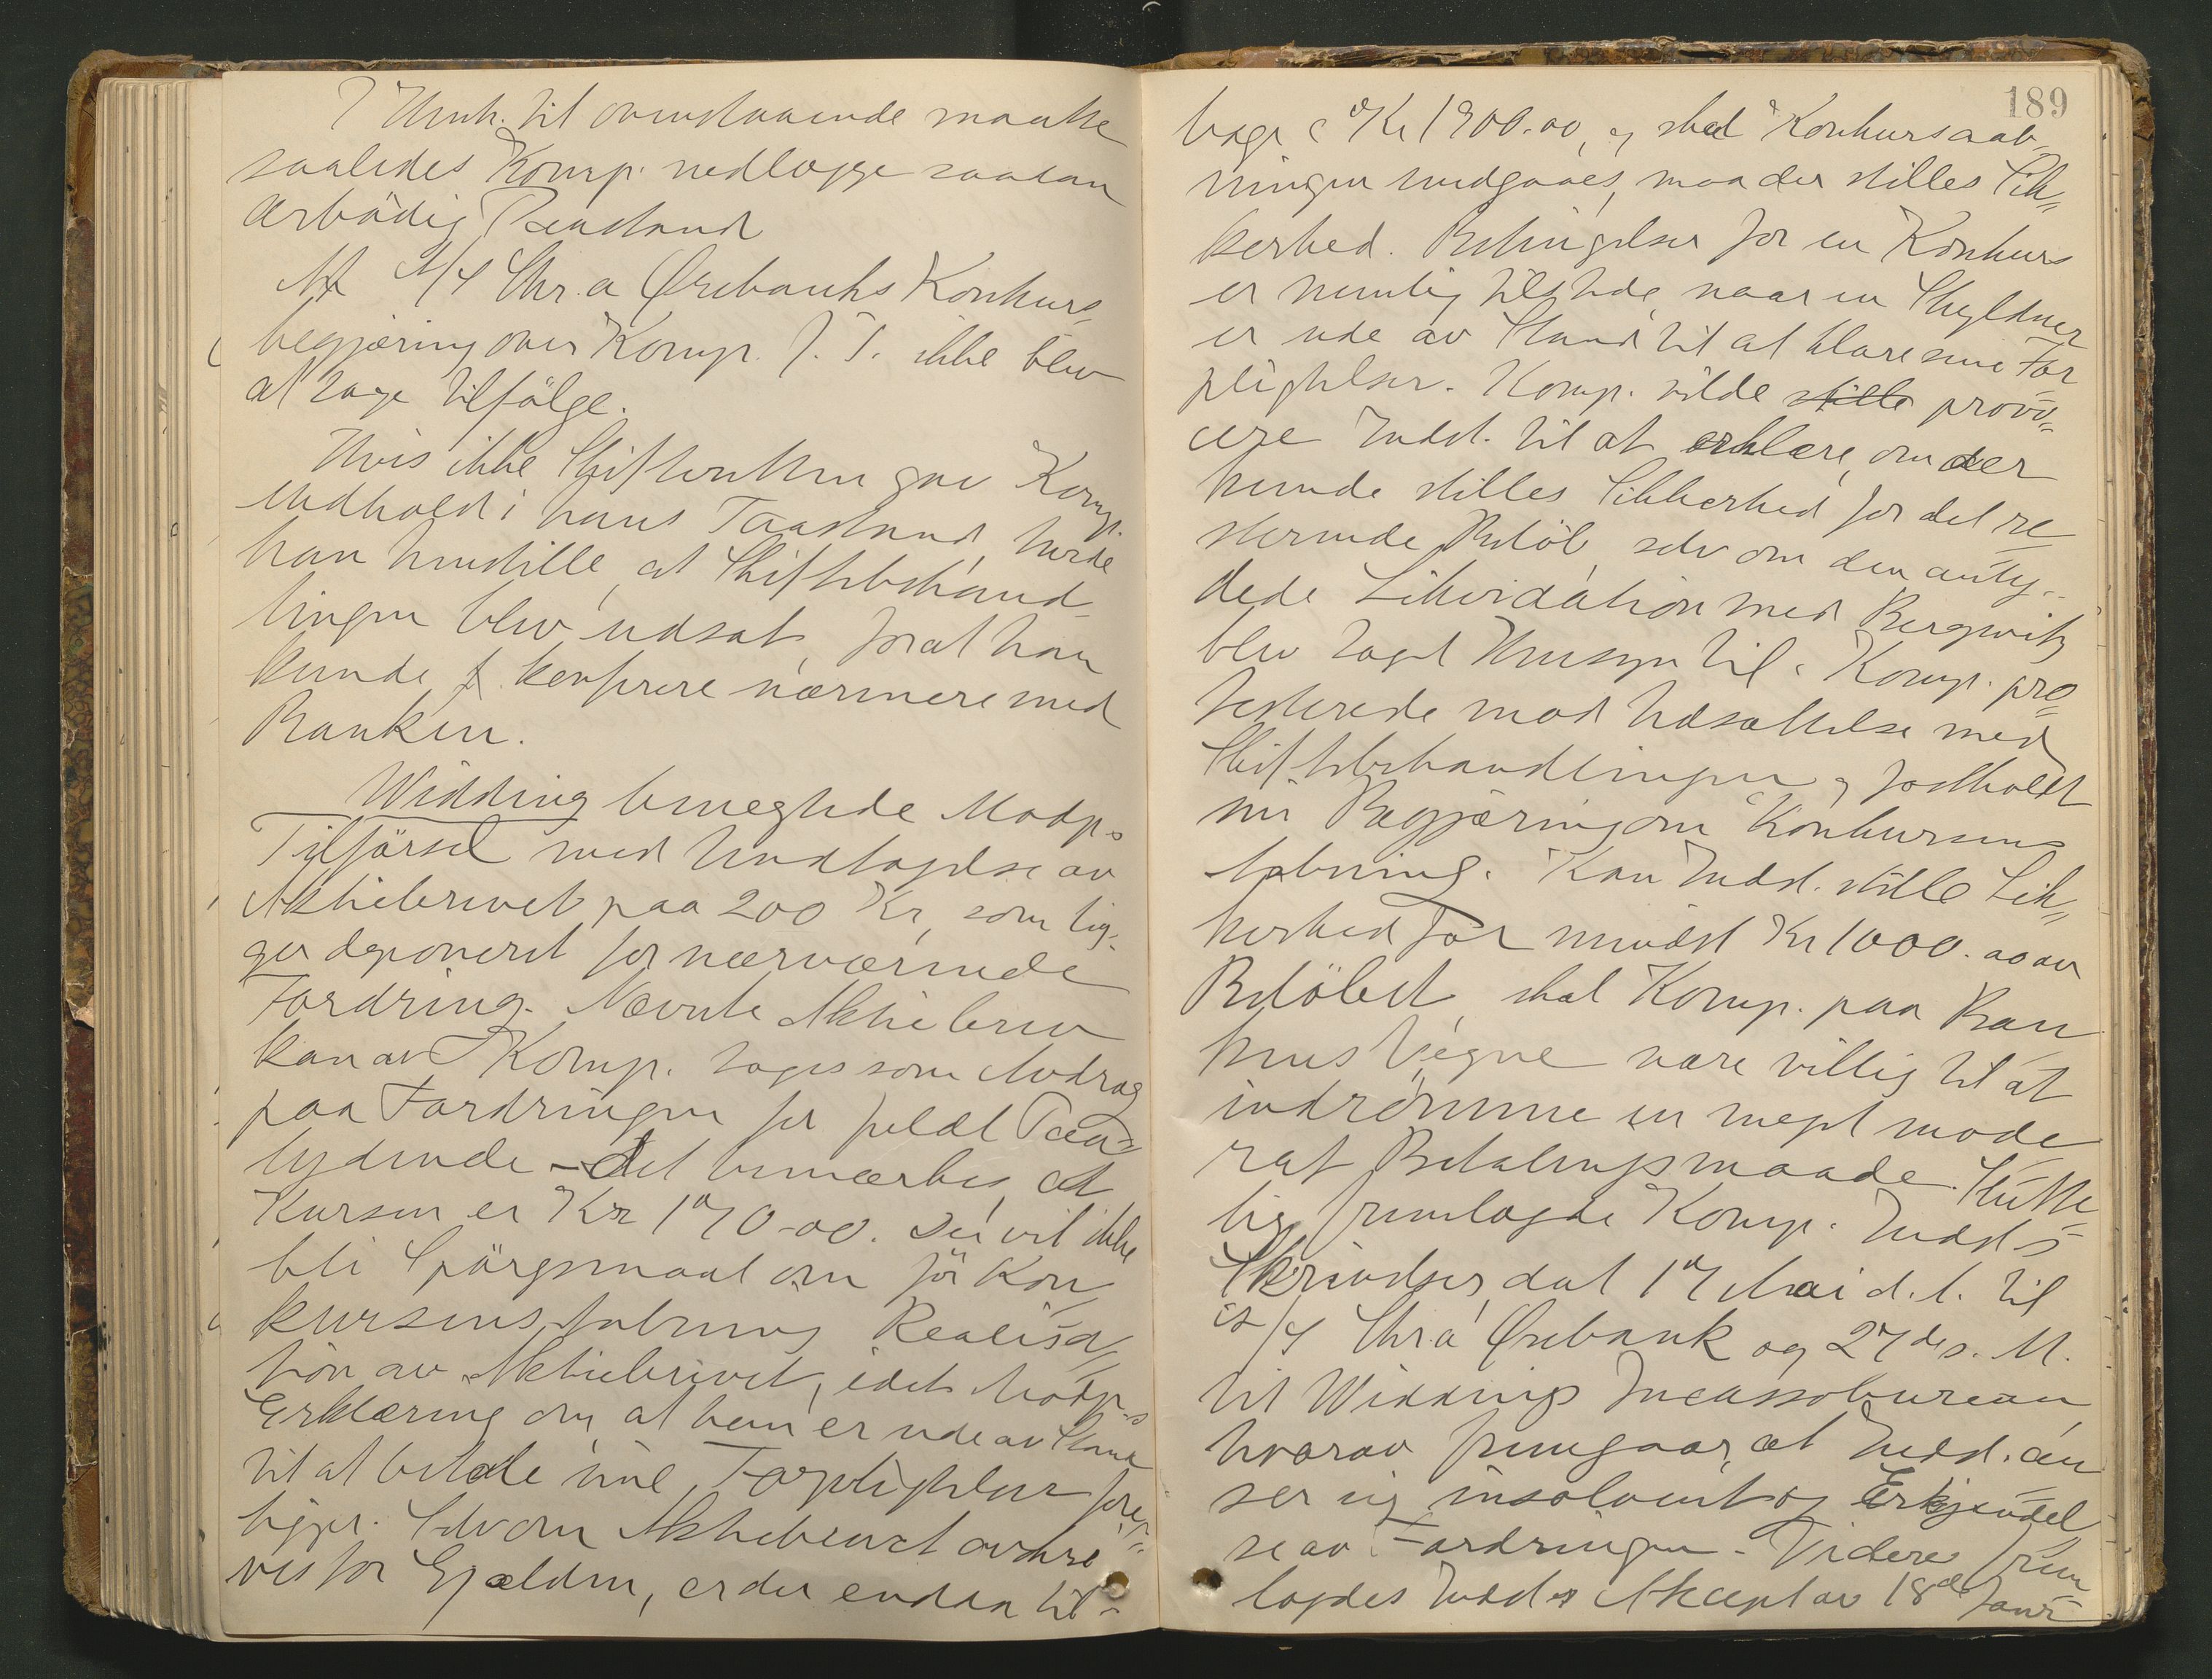 I Henh. til ovenstaaende maatte
saaledes Komp. nedlægge saadan
ærbödig Paastand
At A/S Chr.a Örebanks Konkurs=
begjæring over Komp. J. T. ikke blev
at tage tilfölge.
Hvis ikke Skifteretten gav Komp.
Medhold i hans Paastand, turde
han henstille, at Skiftebehand=
lingen blev udsat, forat han
kunde konferere nærmere med
Banken.
Widding benegtede Modp.s
Tilförsel med Undtagelse av
Aktiebrevet paa 200 Kr, som lig=
ger deponeret for nærværende
Fordring. Nævnte Aktiebrev
kan av Komp. tages som Avdrag
paa Fordringen for fuldt Paa=
lydende - det bemærkes, at
Kursen er Kr 170-00. Der vil ikke
bli Spörgsmaal om för Kon=
kursens Aabning Realisa=
tion av Aktiebrevet, idet Modp.s
Erklæring om, at han er ude av Stand
til at betale sine Forpligtelser fore=
ligger. Selv om Aktiebrevet avskre=
ves for Gjælden, er der endda til=
189
bage ca Kr 1900.00, og skal Konkursaab=
ningen undgaaes, maa der stilles Sik=
kerhed. Betingelser for en Konkurs
er nemlig tilstede, naar en Skyldner
er ude av Stand til at klare sine For=
pligtelser. Komp. vilde stille provo=
cere Indst. til at erklære, om der
kunde stilles Sikkerhed for det re=
sterende Belöb, selv om den anty=
dede Likvidation med Bergwitz
blev taget Hensyn til. Komp. pro=
testerede mod Udsættelse med
Skiftebehandlingen og fastholdt
sin Begjæring om Konkursens
Aabning. Kan Indst. stille Sik=
kerhed for mindst Kr 1000.00 av
Belöbet, skal Komp. paa Ban=
kens Vegne være villig til at
indrömme en meget mode=
rat Betalingsmaade. Slutte=
lig fremlagde Komp. Indst.s
Skrivelser, dat 17 Mai d.A. til
A/S Chr.a Örebank og 27 ds. M.
til Widdings Incassobureau,
hvorav fremgaar, at Indst. an=
ser sig insolvent og Erkjendel=
se av Fordringen. Videre frem=
lagdes Indst.s Akcept av 18de Janr